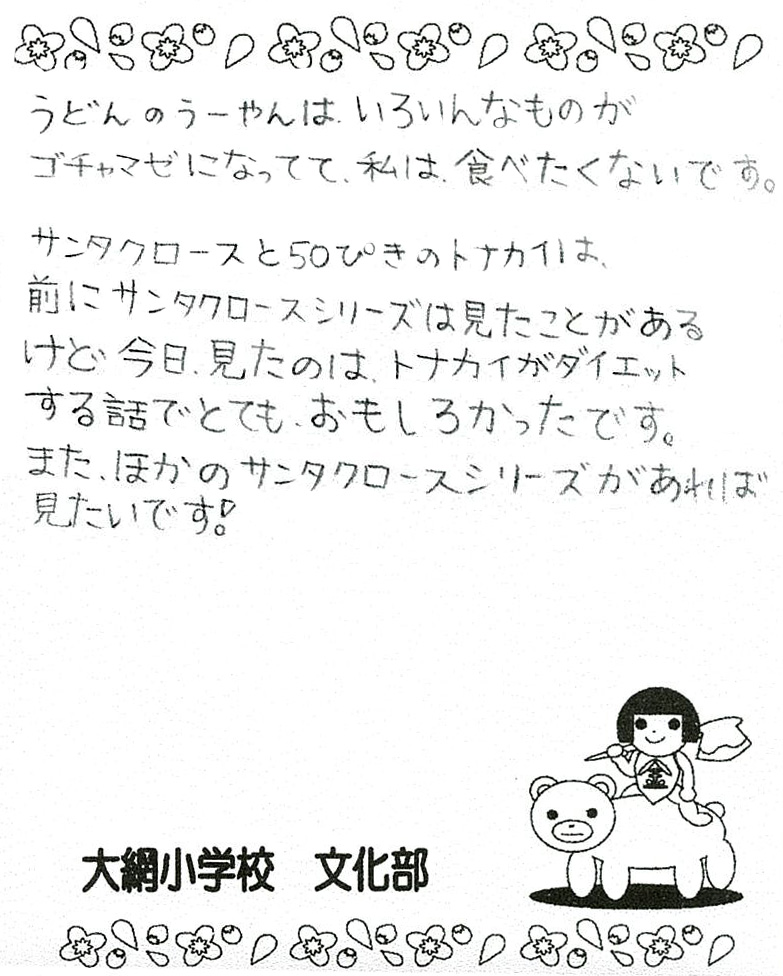 うどんのうーやんは、いろいんなものが
ゴチャマゼになってて、私は、食べたくないです。
サンタクロースと50ぴきのトナカイは、
前にサンタクロースシリーズは見たことがある
けど、今日、見たのは、トナカイがダイエット
する話でとても、おもしろかったです。
また、ほかのサンタクロースシリーズがあれば
見たいです!。
金
大網小学校 文化部